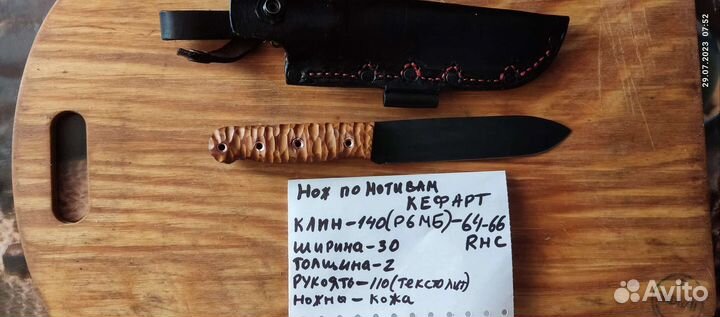 29.07.2023 07:52
Нож по мотивам
кефарт
клин-140(Р6М5)-64-66
RHC
ширина-30
толщина-2
рукоять-110(текстолит)
ножны-кожа
Avito